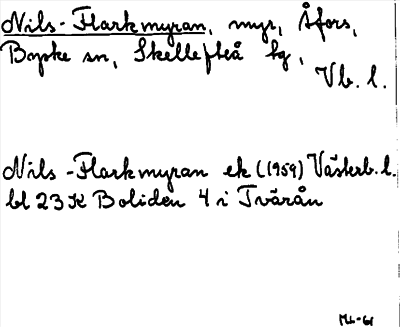 Nils-Flarkmyran, myr, Åfors,
Byske sn, Skellefteå tg,
Vb. l.
Nils-Flarkmyran ek (1959) Västerb. l.
bl 23 K Boliden 4 i Tvärån